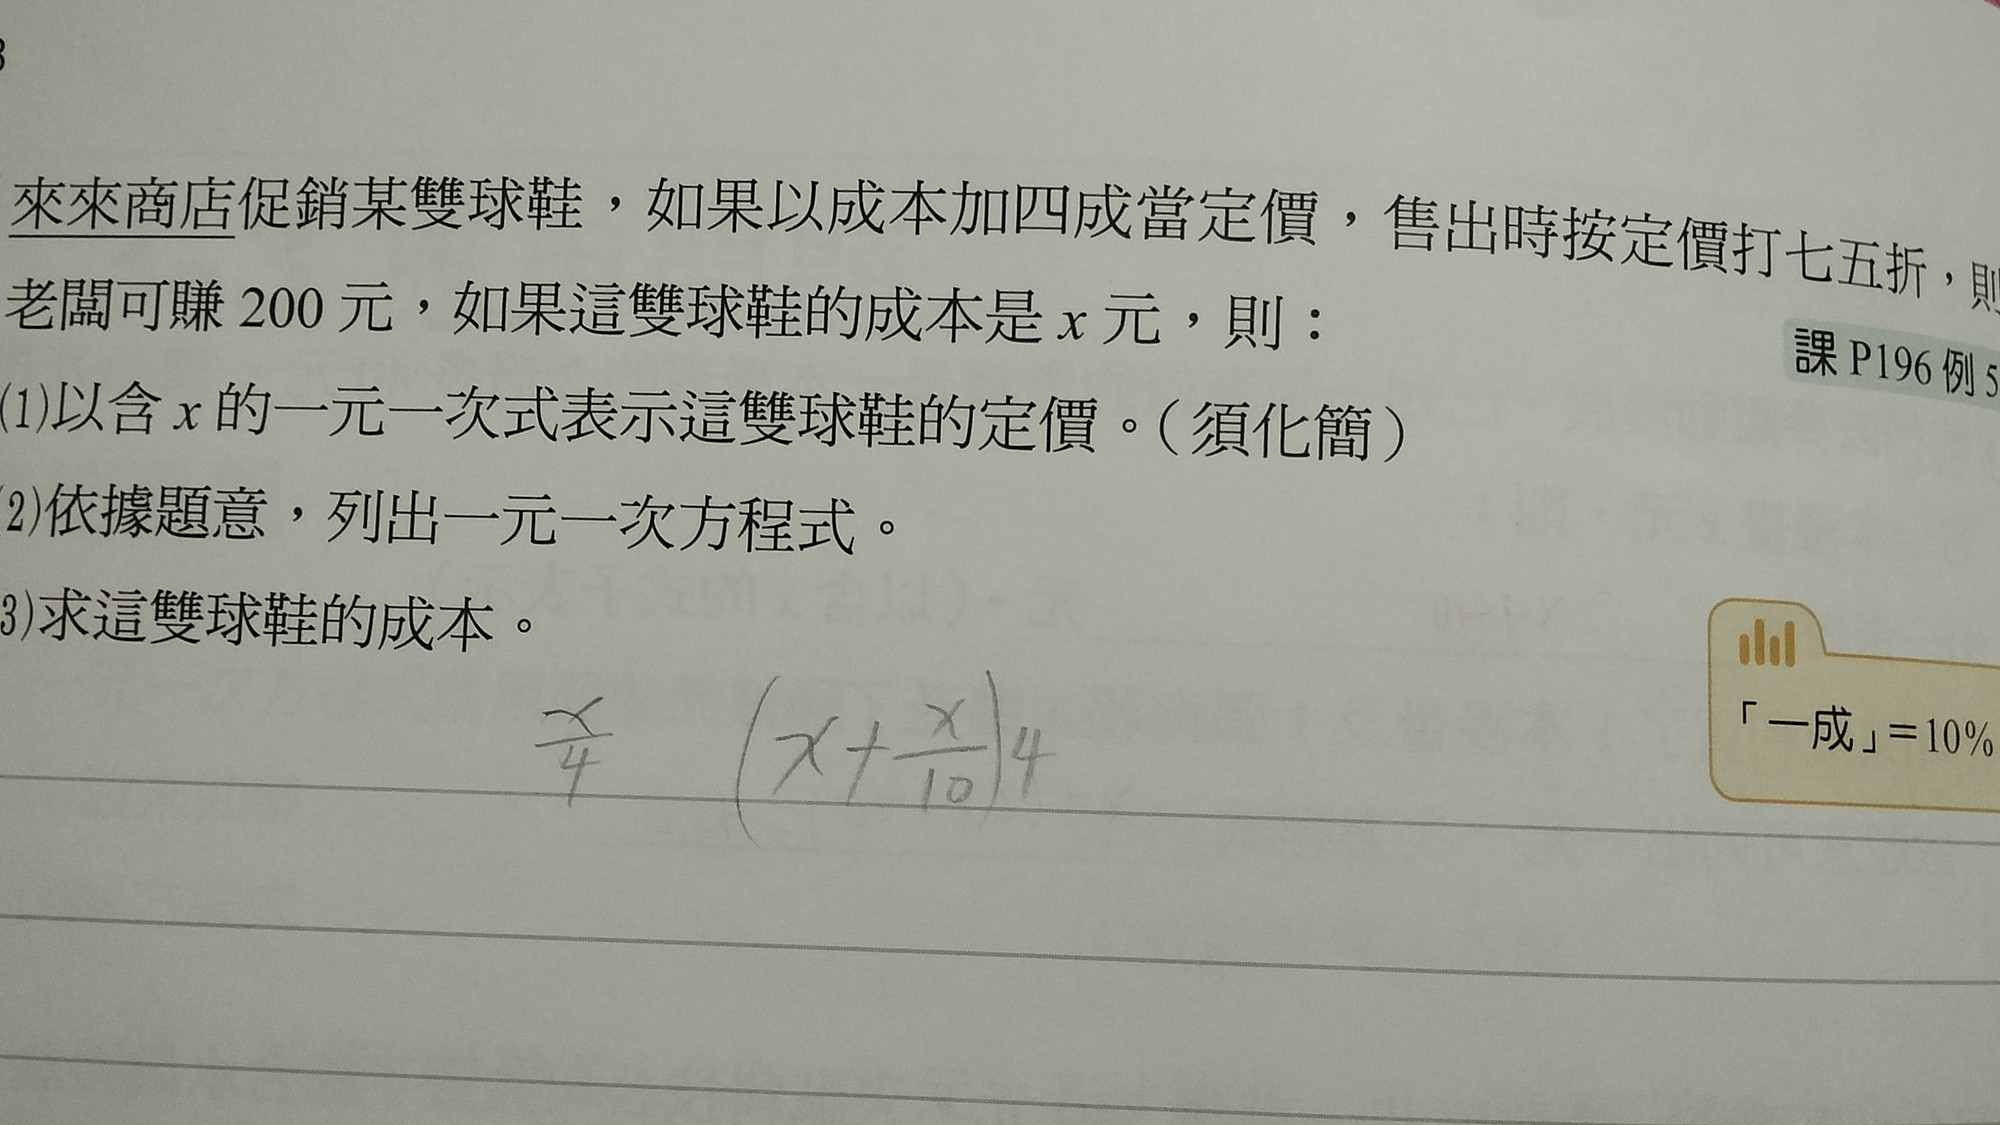 來來商店促銷某雙球鞋，如果以成本加四成當定價，售出時按定價打七五折，則
老闆可賺 200 元，如果這雙球鞋的成本是 x 元，則：
課 P196 例 5
(1)以含 x 的一元一次式表示這雙球鞋的定價。(須化簡)
(2)依據題意，列出一元一次方程式。
3)求這雙球鞋的成本。
x/4 (x+x/10)4
「一成」=10%